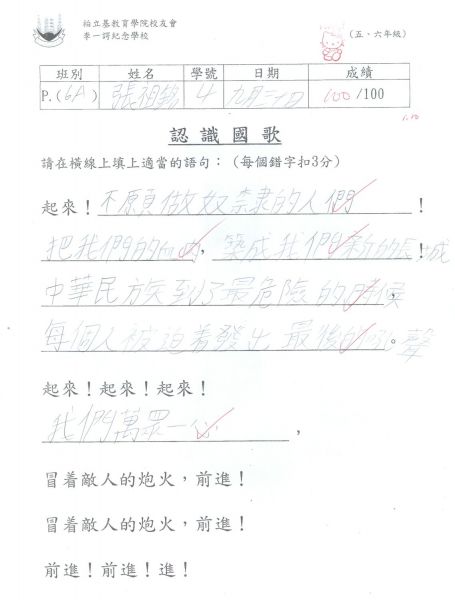 柏立基教育學院校友會
李一諤紀念學校
(五、六年級)
班別 姓名 學號 日期 成績
P.(6A) 張祖銘 4 九月三十日 100/100
認識國歌
請在橫線上填上適當的語句：(每個錯字扣3分)
起來！不願做奴隸的人們！
把我們的血肉，築成我們新的長城！
中華民族到了最危險的時候
每個人被迫着發出最後的吼聲。
起來！起來！起來！
我們萬眾一心，
冒着敵人的炮火，前進！
冒着敵人的炮火，前進！
前進！前進！進！